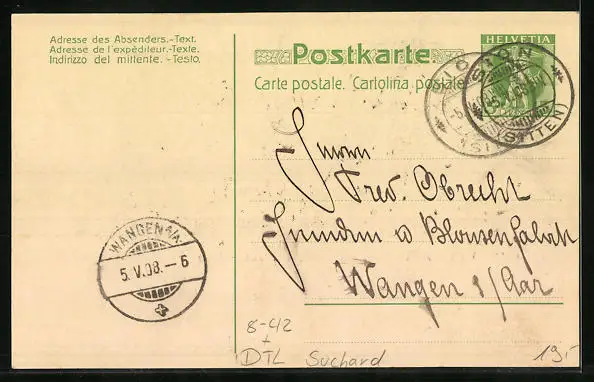 Adresse des Absenders.-Text.
Adresse de l'expéditeur.-Texte.
Indirizzo del mittente. -Testo.
Postkarte.
Carte postale. Cartolina postale.
HELVETIA
SION
(SITTEN)
SION
Herrn
Fred. Obrecht
Hemden & Blousenfabrik
Wangen a/Aar
WANGEN A/A.
5.V.08.-6
8-42
+
DTL Suchard
19.-